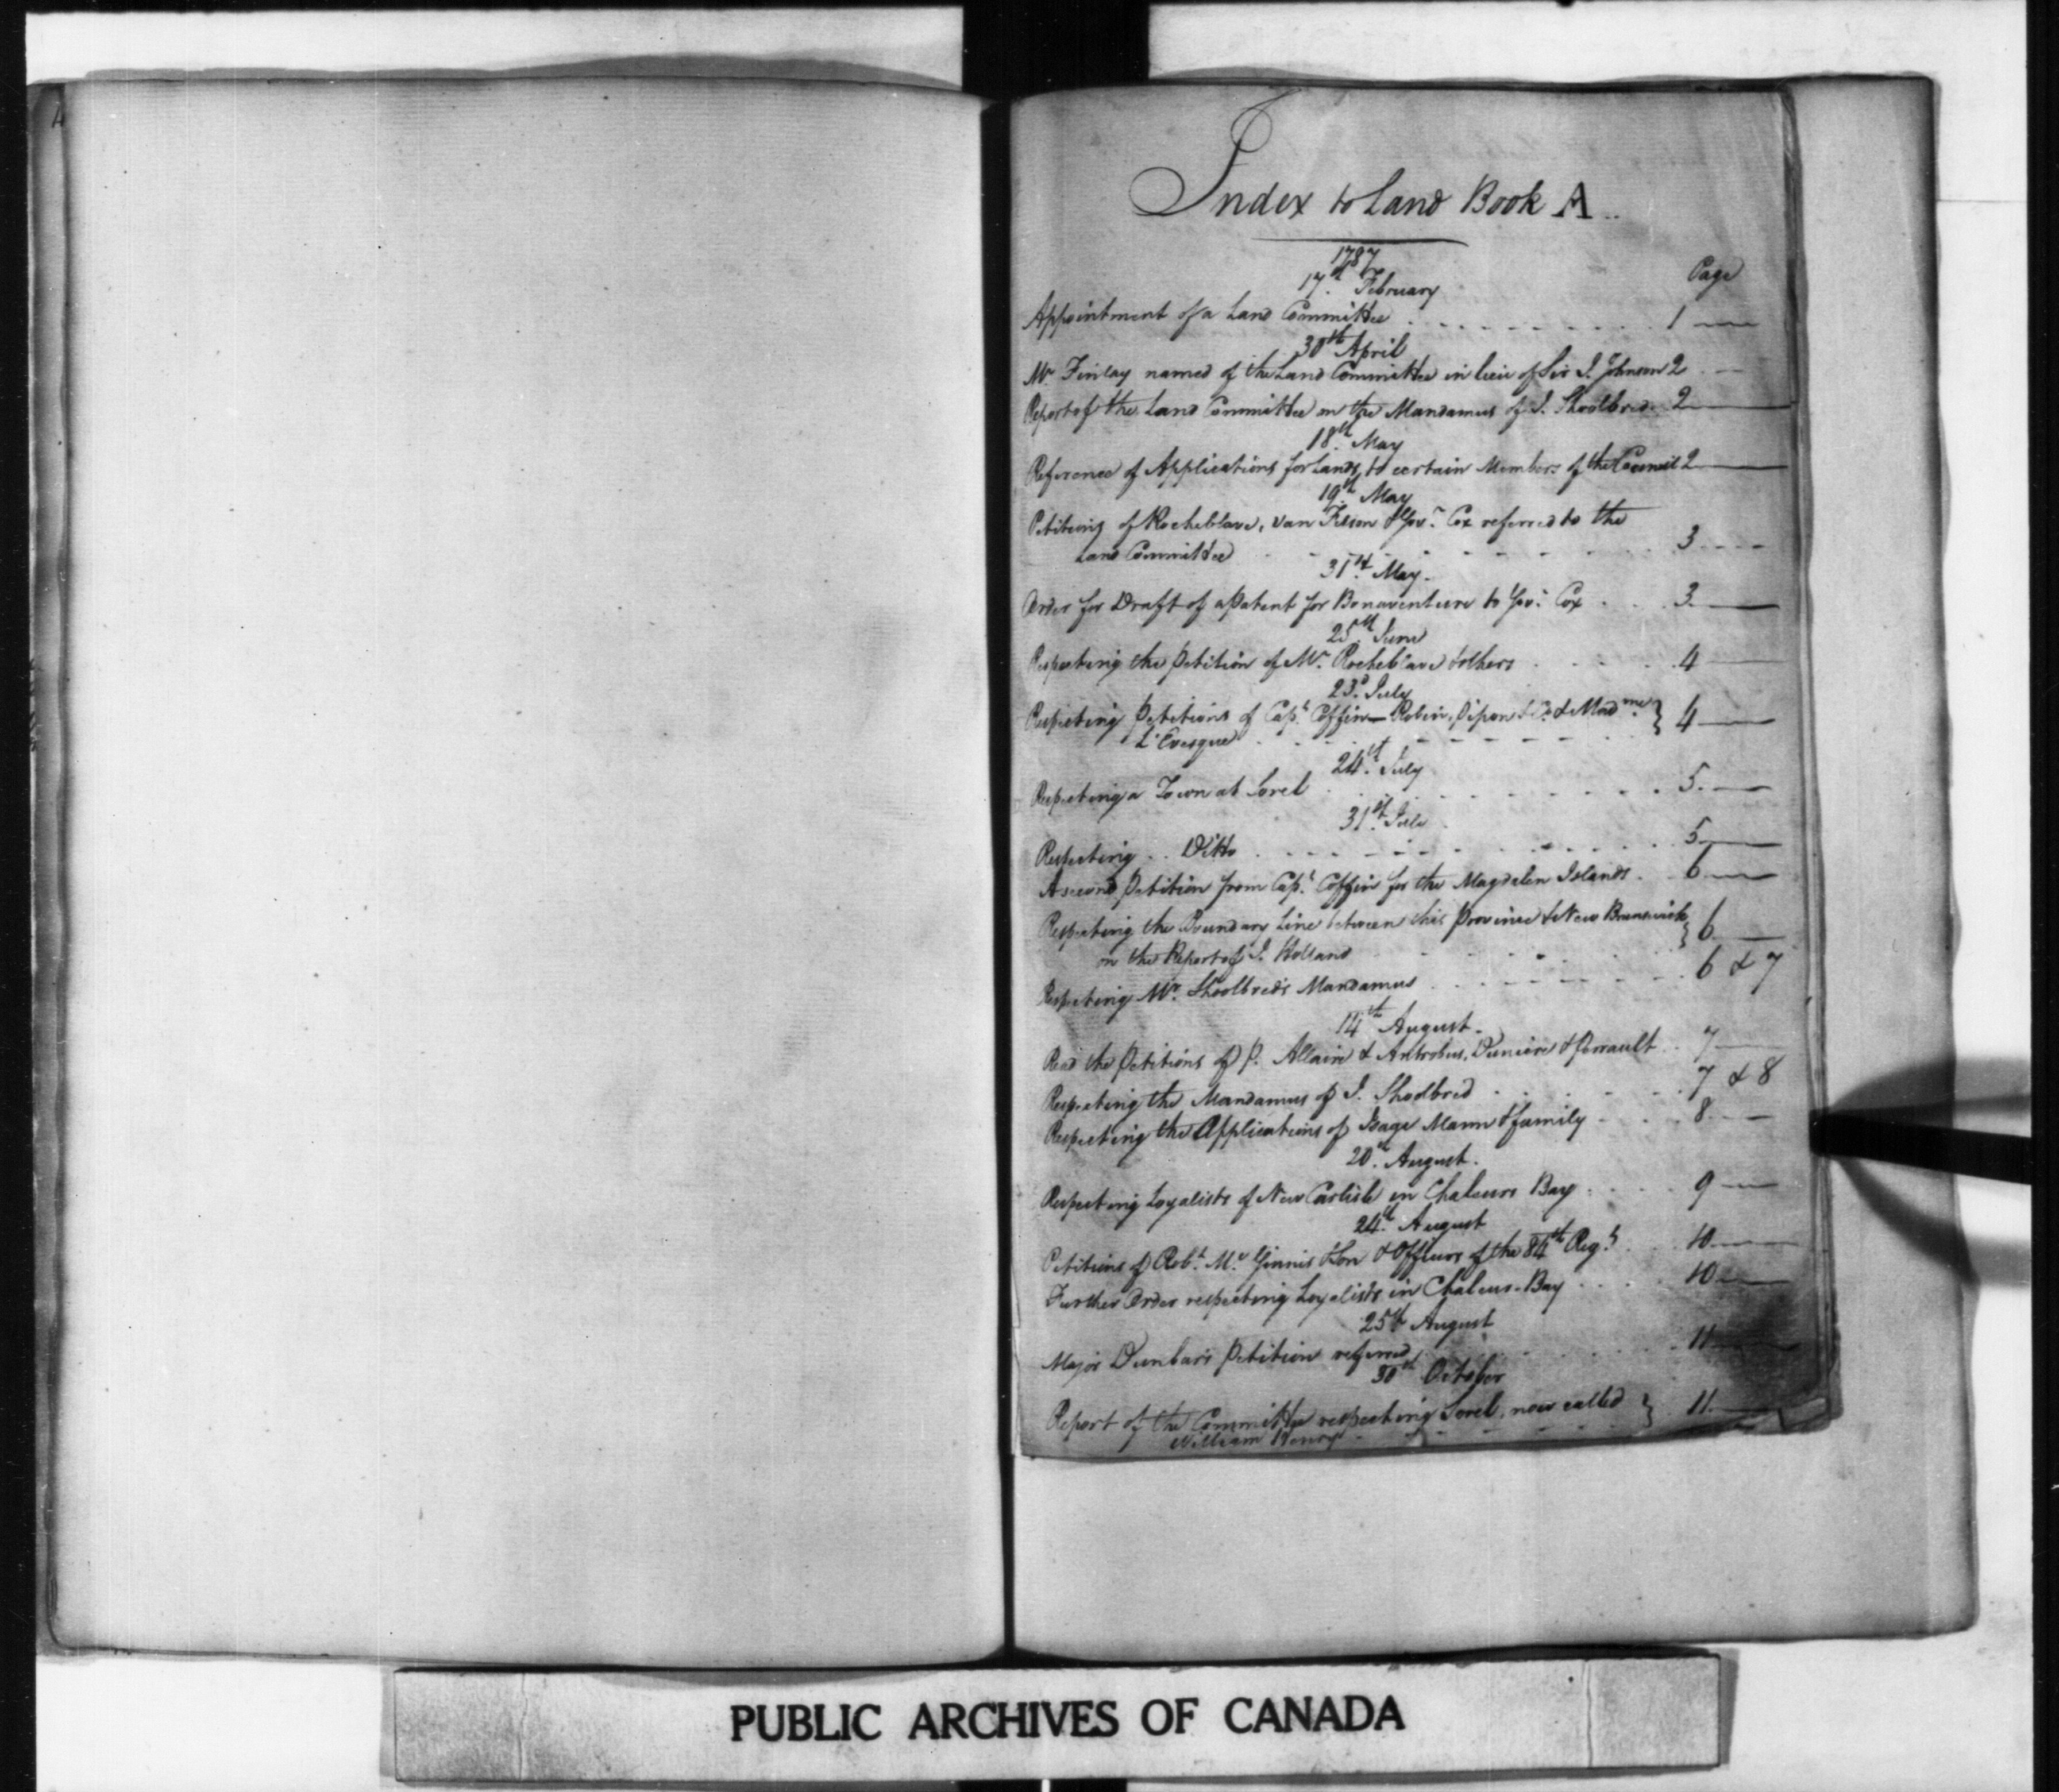 Index to Land Book A
1787
17th February
Page
Appointment of a Land Committee 1
30th April
Mr. Finlay named of the Land Committee in lieu of Sir J. Johnson 2
Report of the Land Committee on the Mandamus of J. Shoolbred 2
18th May
Reference of Applications for Lands, to certain Members of the Council 2
19th May
Petitions of Rocheblave, van Felson & Govr. Cox referred to the
Land Committee 3
31st May
Order for Draft of a Patent for Bonaventure to Govr. Cox 3
25th June
Respecting the Petition of Mr. Rocheblave & others 4
23d July
Respecting Petitions of Capt. Coffin — Robin, Pipon & Co. & Madme. } 4
L'Evesque
24th July
Respecting a Town at Sorel 5
31st July
Respecting Ditto 5
A second Petition from Capt. Coffin for the Magdalen Islands 6
Respecting the Boundary Line between this Province & New Brunswick } 6
on the Report of J. Holland
Respecting Mr. Shoolbred's Mandamus 6 & 7
14th August
Read the Petitions of P. Allaire & Antrobus, Duniere & Perrault 7
Respecting the Mandamus of J. Shoolbred 7 & 8
Respecting the Applications of Isaac Mann & family 8
20th August
Respecting Loyalists of New Carlisle in Chaleurs Bay 9
24th August
Petitions of Robt. Mc. Ginnis & Son & Officers of the 84th Regt. 10
Further Order respecting Loyalists in Chaleur Bay 10
25th August
Major Dunbar's Petition referred 11
30th October
Report of the Committee respecting Sorel, now called } 11
William Henry
PUBLIC ARCHIVES OF CANADA